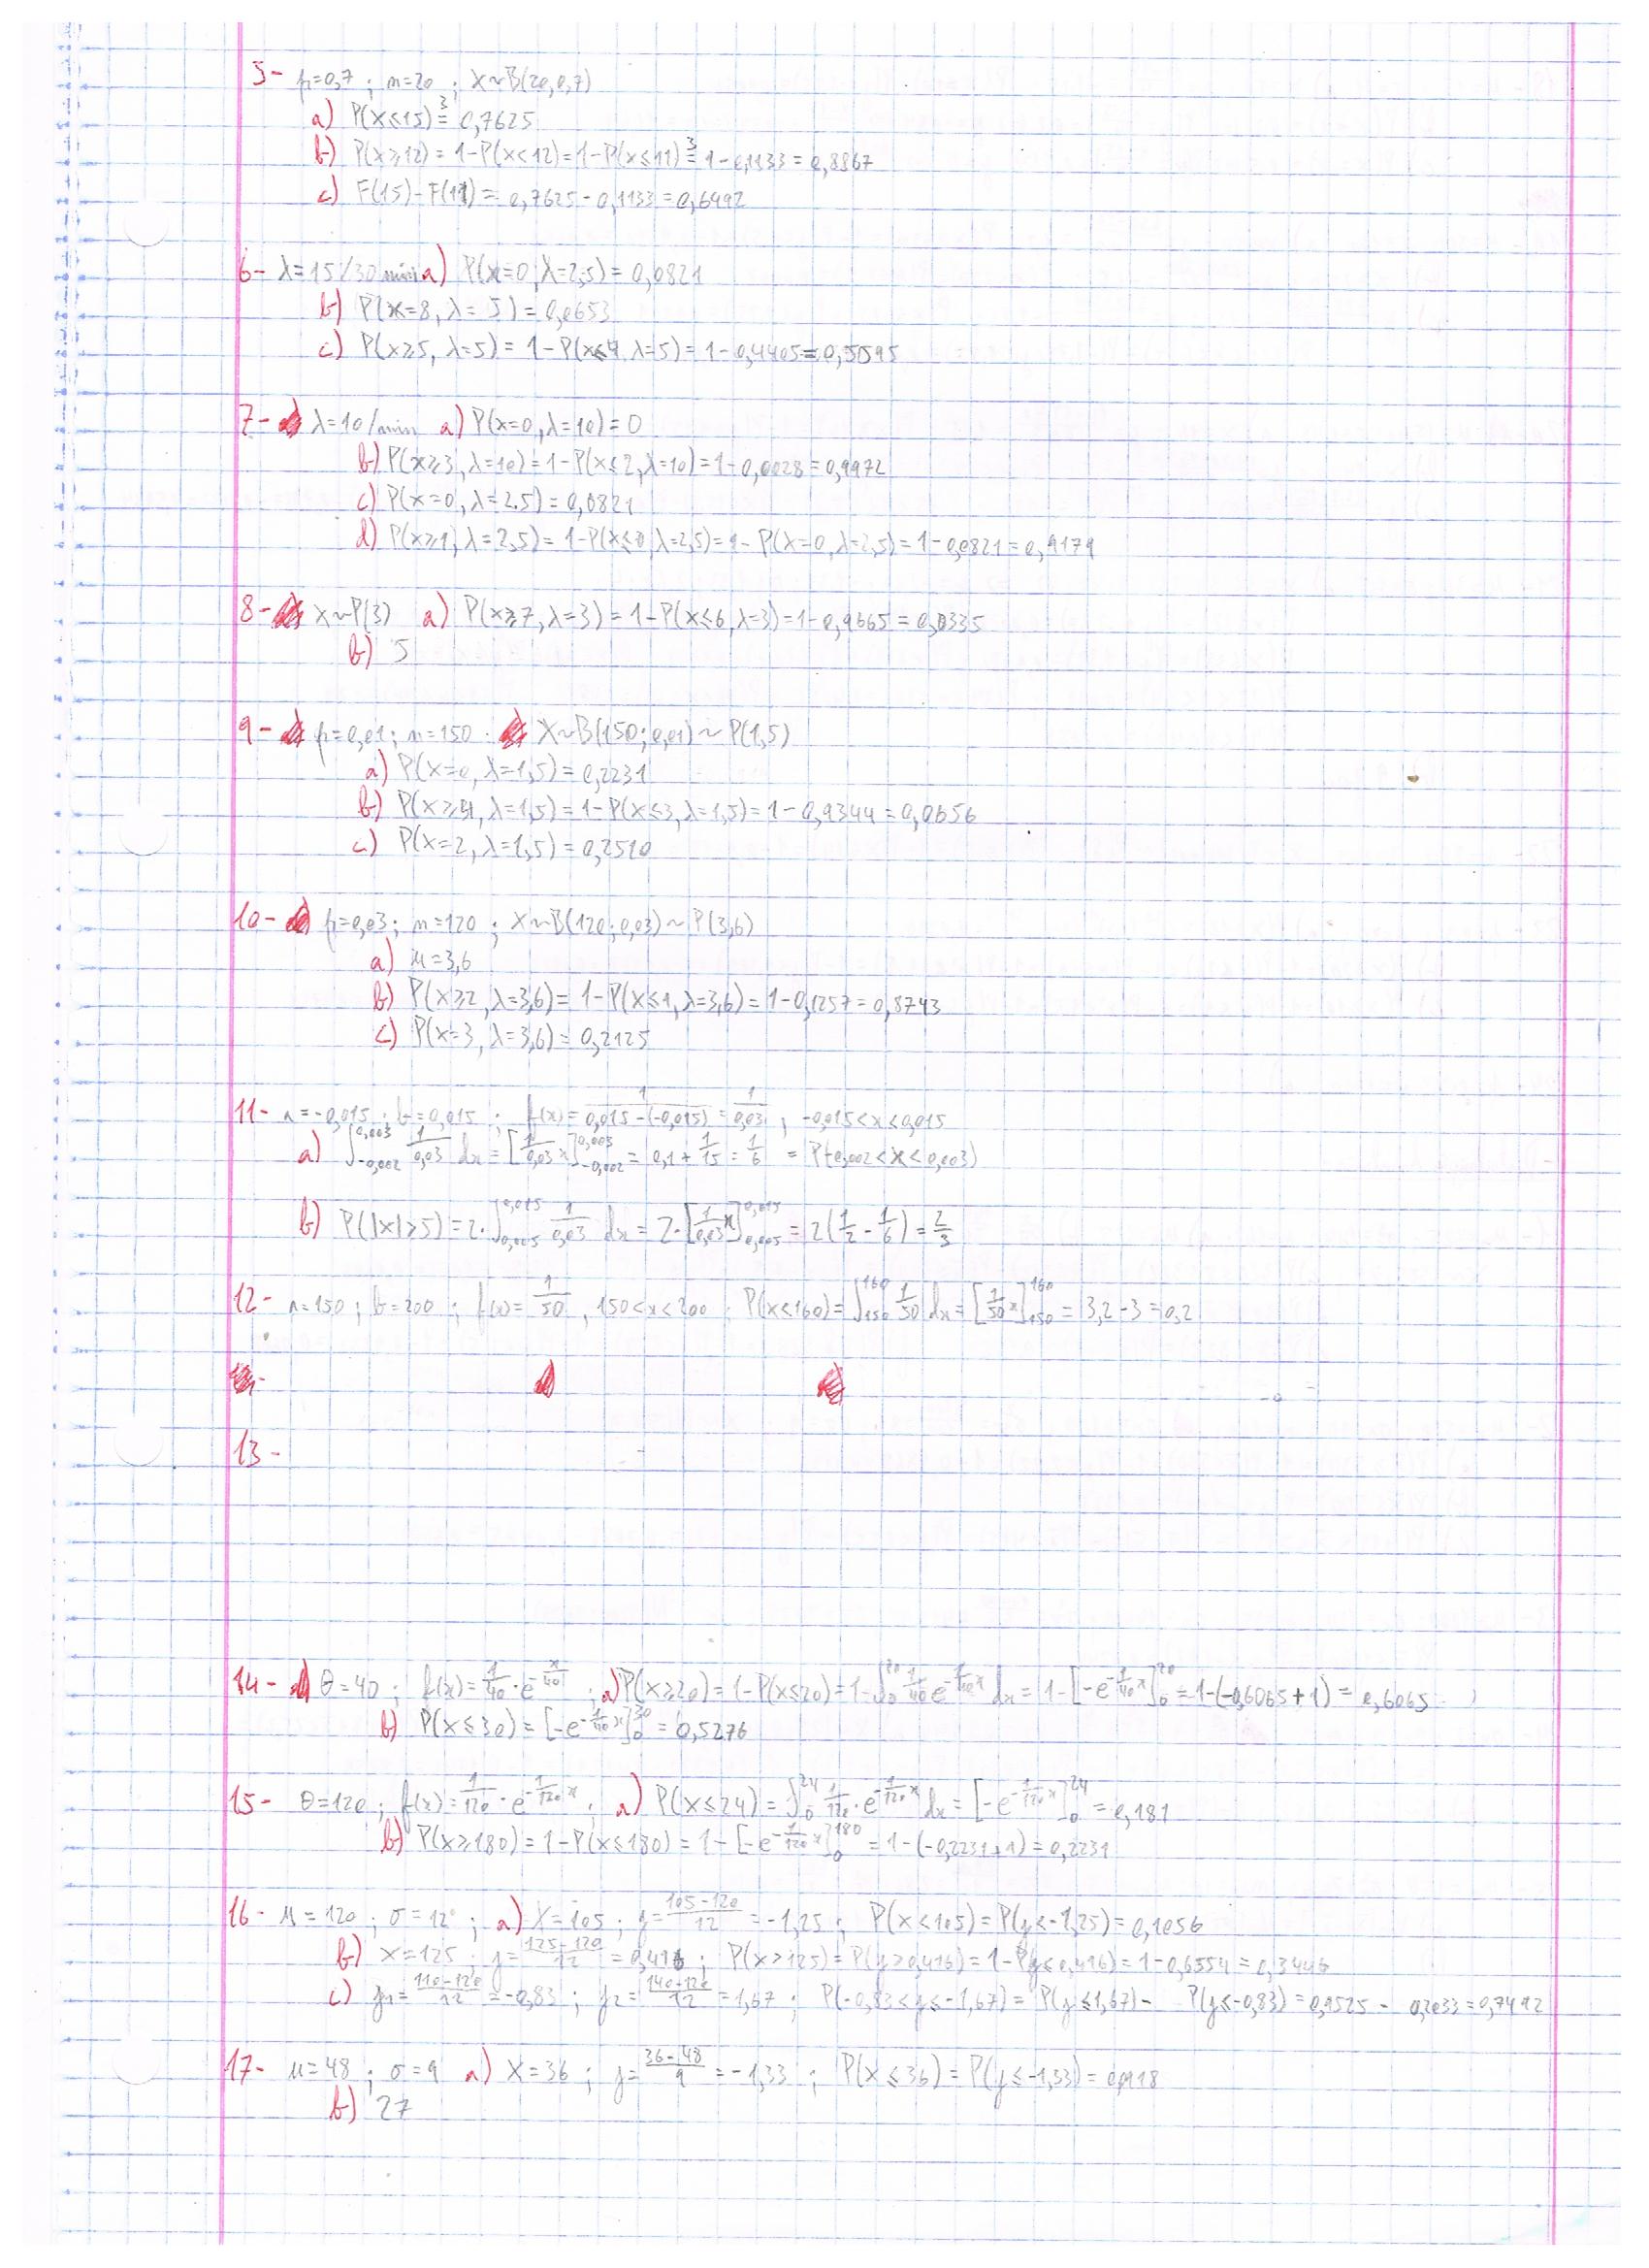 5- p=0,7 ; n=20 ; X~B(20,0,7)
a) P(X≤15) =³ 0,7625
b) P(X≥12) = 1-P(X<12) = 1-P(X≤11) =³ 1-0,1133 = 0,8867
c) F(15)-F(11) = 0,7625-0,1133 = 0,6492
6- λ=15/30min a) P(X=0, λ=2,5) = 0,0821
b) P(X=8, λ=5) = 0,0653
c) P(X≥5, λ=5) = 1-P(X≤4, λ=5) = 1-0,4405 = 0,5595
7- λ=10/min a) P(X=0, λ=10) = 0
b) P(X≥3, λ=10) = 1-P(X≤2, λ=10) = 1-0,0028 = 0,9972
c) P(X=0, λ=2.5) = 0,0821
d) P(X≥1, λ=2,5) = 1-P(X≤0, λ=2,5) = 1-P(X=0, λ=2,5) = 1-0,0821 = 0,9179
8- X~P(3) a) P(X≥7, λ=3) = 1-P(X≤6, λ=3) = 1-0,9665 = 0,0335
b) 5
9- p=0,01 ; n=150 ; X~B(150;0,01) ~ P(1,5)
a) P(X=0, λ=1,5) = 0,2231
b) P(X≥4, λ=1,5) = 1-P(X≤3, λ=1,5) = 1-0,9344 = 0,0656
c) P(X=2, λ=1,5) = 0,2510
10- p=0,03 ; n=120 ; X~B(120;0,03) ~ P(3,6)
a) μ=3,6
b) P(X≥2, λ=3,6) = 1-P(X≤1, λ=3,6) = 1-0,1257 = 0,8743
c) P(X=3, λ=3,6) = 0,2125
11- a=-0,015 ; b=0,015 ; f(x) = 1/(0,015-(-0,015)) = 1/0,03 ; -0,015<x<0,015
a) ∫_{-0,002}^{0,003} 1/0,03 dx = [1/0,03 x]_{-0,002}^{0,003} = 0,1 + 1/15 = 1/6 = P(-0,002<X<0,003)
b) P(|X|≥5) = 2·∫_{0,005}^{0,015} 1/0,03 dx = 2·[1/0,03 x]_{0,005}^{0,015} = 2(1/2 - 1/6) = 2/3
12- a=150 ; b=200 ; f(x) = 1/50 , 150<x<200 ; P(X≤160) = ∫_{150}^{160} 1/50 dx = [1/50 x]_{150}^{160} = 3,2-3 = 0,2
13-
14- θ=40 ; f(x) = 1/40 · e^{-x/40} ; a) P(X≥20) = 1-P(X≤20) = 1-∫_0^{20} 1/40 e^{-1/40 x} dx = 1-[-e^{-1/40 x}]_0^{20} = 1-(-0,6065+1) = 0,6065
b) P(X≤30) = [-e^{-1/40 x}]_0^{30} = 0,5276
15- θ=120 ; f(x) = 1/120 · e^{-1/120 x} ; a) P(X≤24) = ∫_0^{24} 1/120 · e^{-1/120 x} dx = [-e^{-1/120 x}]_0^{24} = 0,181
b) P(X≥180) = 1-P(X≤180) = 1-[-e^{-1/120 x}]_0^{180} = 1-(-0,2231+1) = 0,2231
16- μ=120 ; σ=12 ; a) X=105 ; z = (105-120)/12 = -1,25 ; P(X<105) = P(z≤-1,25) = 0,1056
b) X=125 ; z = (125-120)/12 = 0,416 ; P(X>125) = P(z>0,416) = 1-P(z≤0,416) = 1-0,6554 = 0,3446
c) z₁ = (110-120)/12 = -0,83 ; z₂ = (140-120)/12 = 1,67 ; P(-0,83<z≤-1,67) = P(z≤1,67) - P(z≤-0,83) = 0,9525 - 0,2033 = 0,7492
17- μ=48 ; σ=9 a) X=36 ; z = (36-48)/9 = -1,33 ; P(X≤36) = P(z≤-1,33) = 0,0918
b) 27